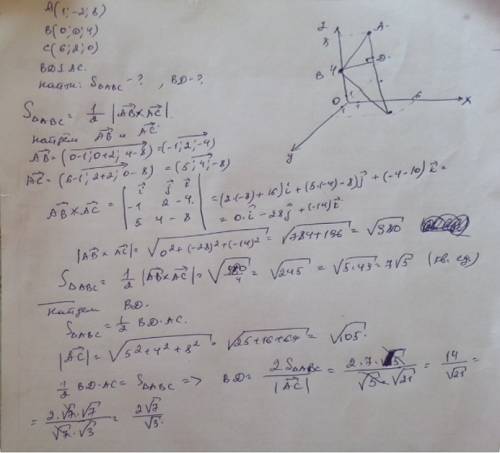 A(1; -2; 8)
B(0; 0; 4)
C(6; 2; 0)
BD⊥AC.
Найти: S△ABC - ?, BD - ?
S△ABC = 1/2 |AB×AC|
Найдем AB и AC
AB = (0-1; 0+2; 4-8) = (-1; 2; -4)
AC = (6-1; 2+2; 0-8) = (5; 4; -8)
AB×AC = | i j k; -1 2 -4; 5 4 -8 | = (2·(-8)+16)i + (5·(-4)-8)j + (-4-10)k =
= 0·i - 28j + (-14)k
|AB×AC| = √(0²+(-28)²+(-14)²) = √(784+196) = √980
S△ABC = 1/2 |AB×AC| = √(980/4) = √245 = √(5·49) = 7√5 (кв. ед)
Найдем BD.
S△ABC = 1/2 BD·AC.
|AC| = √(5²+4²+8²) = √(25+16+64) = √105.
1/2 BD·AC = S△ABC => BD = 2S△ABC/|AC| = 2·7·√5/(√5·√21) = 14/√21 =
= 2·√7·√7/(√7·√3) = 2√7/√3.
z
8
A
B 4
D
O
1
6
x
y